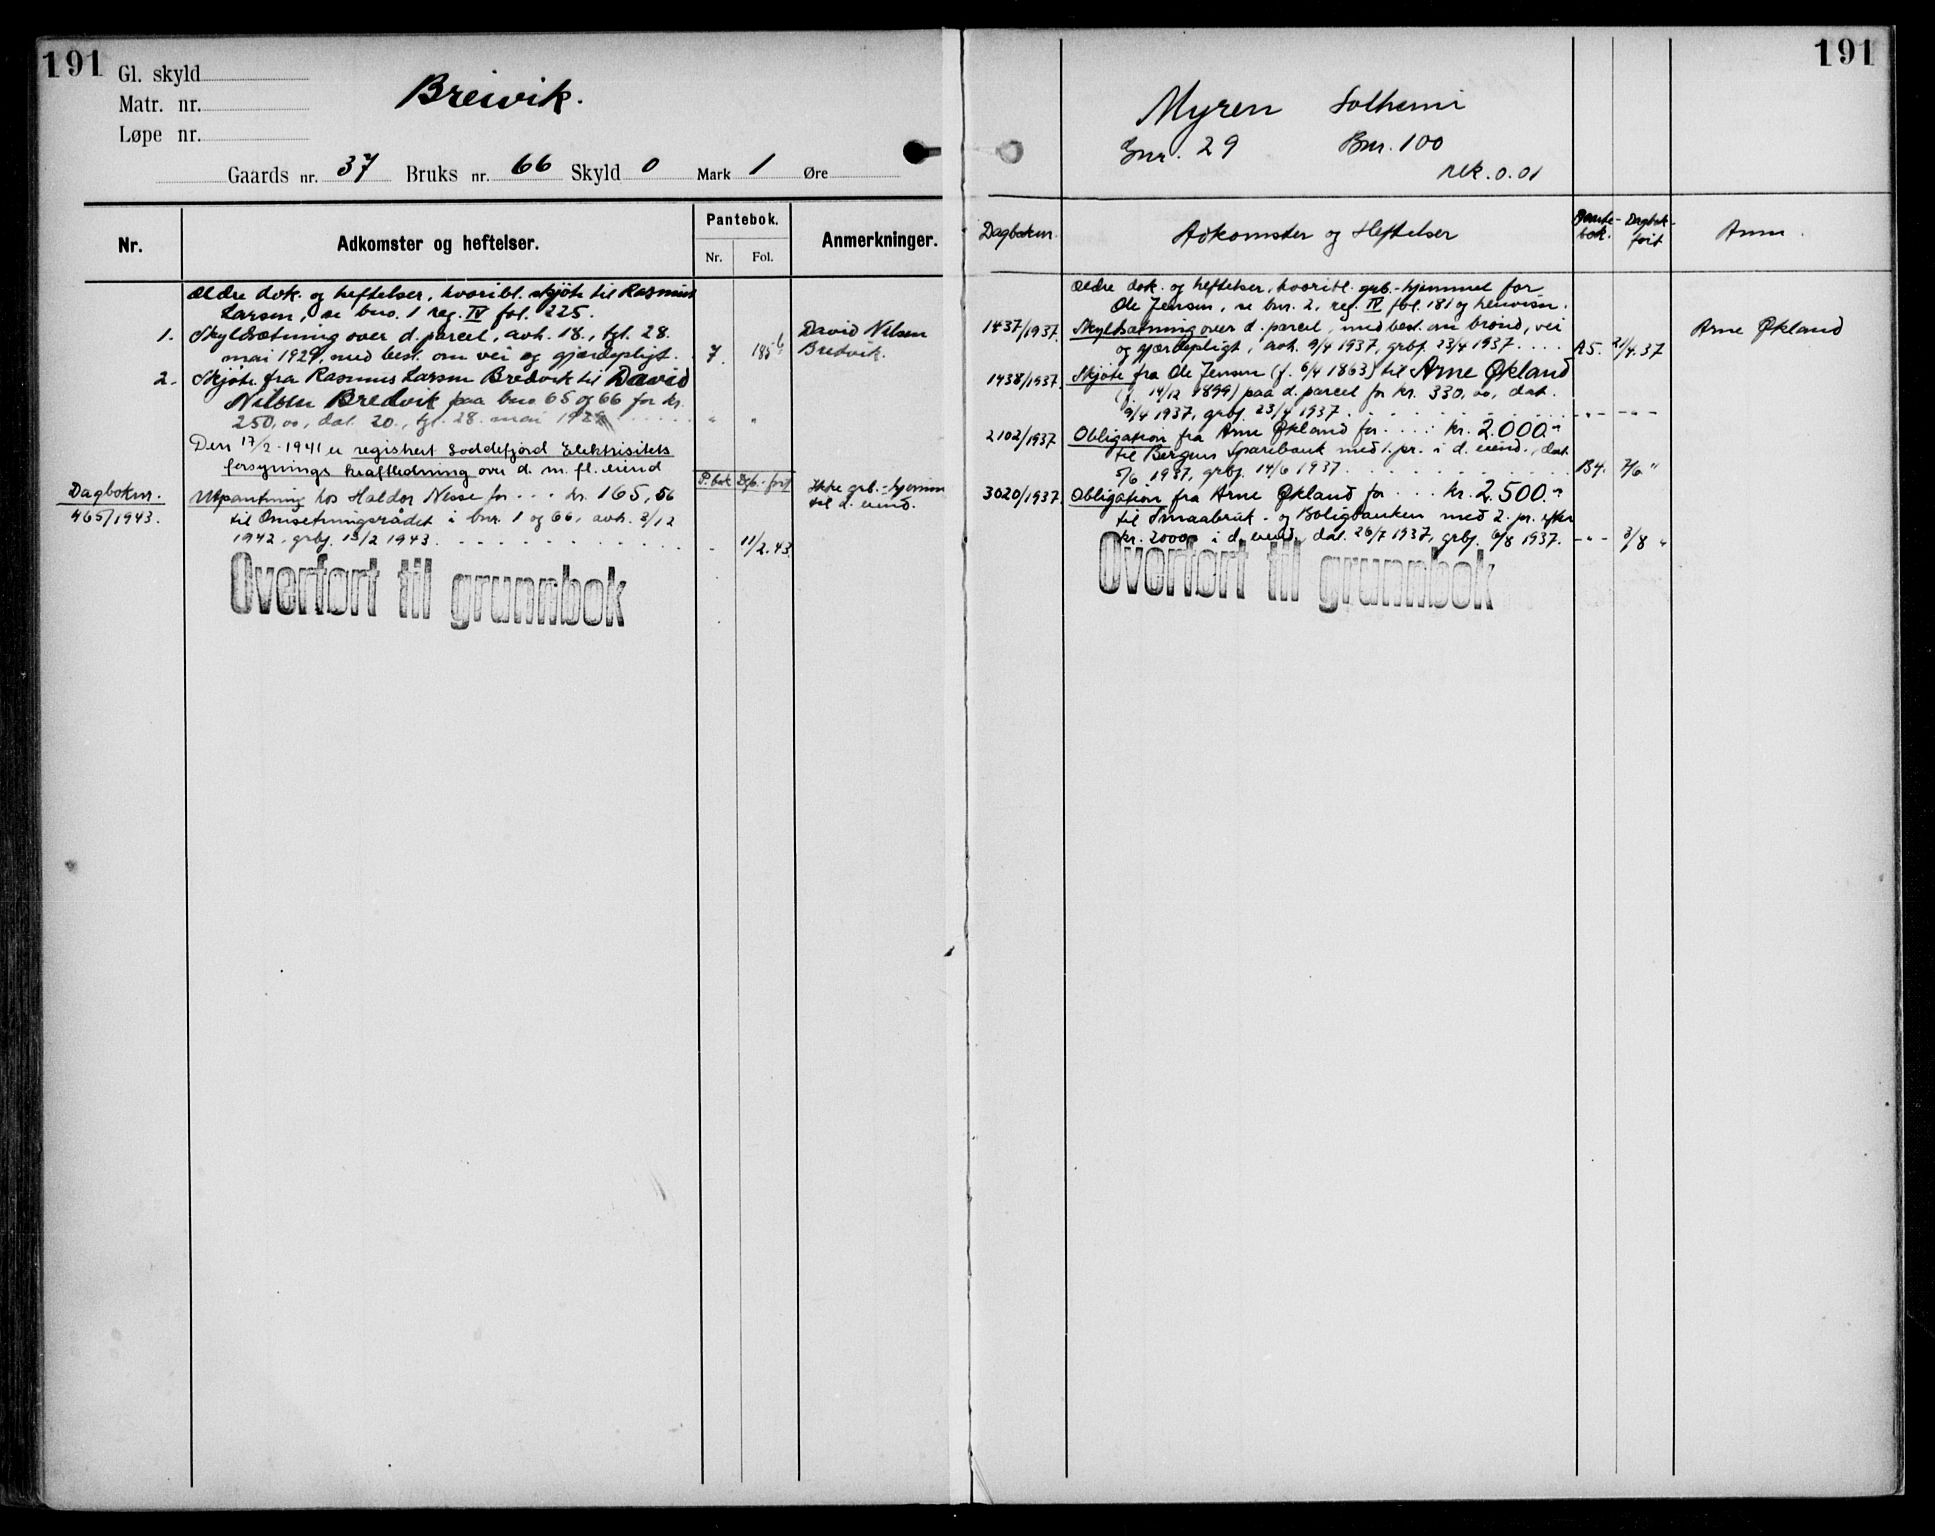 191
Gl. skyld
Matr. nr.
Løpe nr.
Breivik.
Gaards nr. 37 Bruks nr. 66 Skyld 0 Mark 1 Øre
Nr.
Adkomster og heftelser.
Pantebok.
Nr. Fol.
Anmerkninger.
Ældre dok. og heftelser, hvoribl. skjøte til Rasmus
Larsen, se bno. 1 reg. IV fol. 225.
1. Skyldsætning over d. parcel, avh. 18., tgl. 28.
mai 1929, med best. om vei og gjærdepligt. 7. 185 b
David Nilsen
Bredvik.
2. Skjøte fra Rasmus Larsen Bredvik til David
Nilsen Bredvik paa bno 65 og 66 for kr.
250,00, dat. 20., tgl. 28. mai 1929 " "
Den 17/2-1941 er registrert Loddefjord Elektrisitets
forsynings kraftledning over d. m. fl. eiend
P.bok Dgb.-ført
Dagboknr.
465/1943.
Utpantning hos Haldor Nesse for kr. 165,56
til Omsetningsrådet i bnr. 1 og 66, avh. 3/12
1942, grbj. 13/2 1943. - 11/2.43
Ikke grb.-hjemm
til d. eiend.
Overført til grunnbok
191
Myren Solheim
Gnr. 29 Bnr. 100
rek. 0.01
Dagboknr.
Adkomster og Heftelser
Pante-
bok.
Dagbok-
ført
Anm.
Ældre dok. og heftelser, hvoribl. grb.-hjemmel for
Ole Jensen, se bnr. 2, reg. IV fol. 181 og henvisn.
1437/1937. Skyldsætning over d. parcel, med best. om brønd, vei
og gjærdepligt, avh. 9/4 1937, grbf. 23/4 1937. A5. 21/4.37
Arne Økland
1438/1937. Skjøte fra Ole Jensen (f. 6/4 1863) til Arne Økland
(f. 14/12 1899) paa d. parcel for kr. 330,00, dat.
9/4 1937, grbf. 23/4 1937. -"- -"-
2102/1937. Obligation fra Arne Økland for kr. 2.000.-
til Bergens Sparebank med 1. pr. i d. eiend., dat.
5/6 1937, grbf. 14/6 1937. B4. 7/6 "
3020/1937. Obligation fra Arne Økland for kr. 2.500.-
til Smaabruk- og Boligbanken med 2. pr. efter
kr. 2000,- i d. eiend., dat. 26/7 1937, grbf. 6/8 1937. -"- 3/8 "
Overført til grunnbok